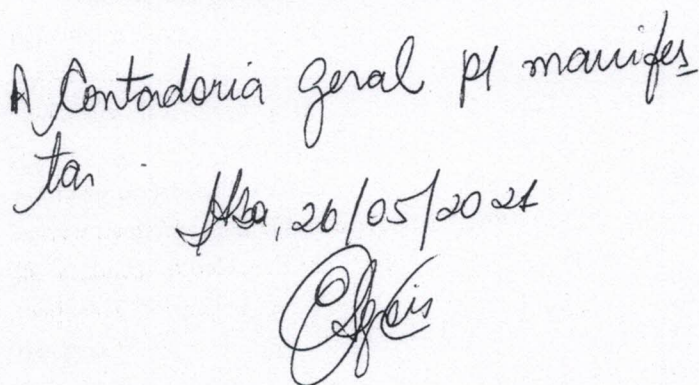 A Contadoria Geral p/ manifes
tar.
26/05/2021